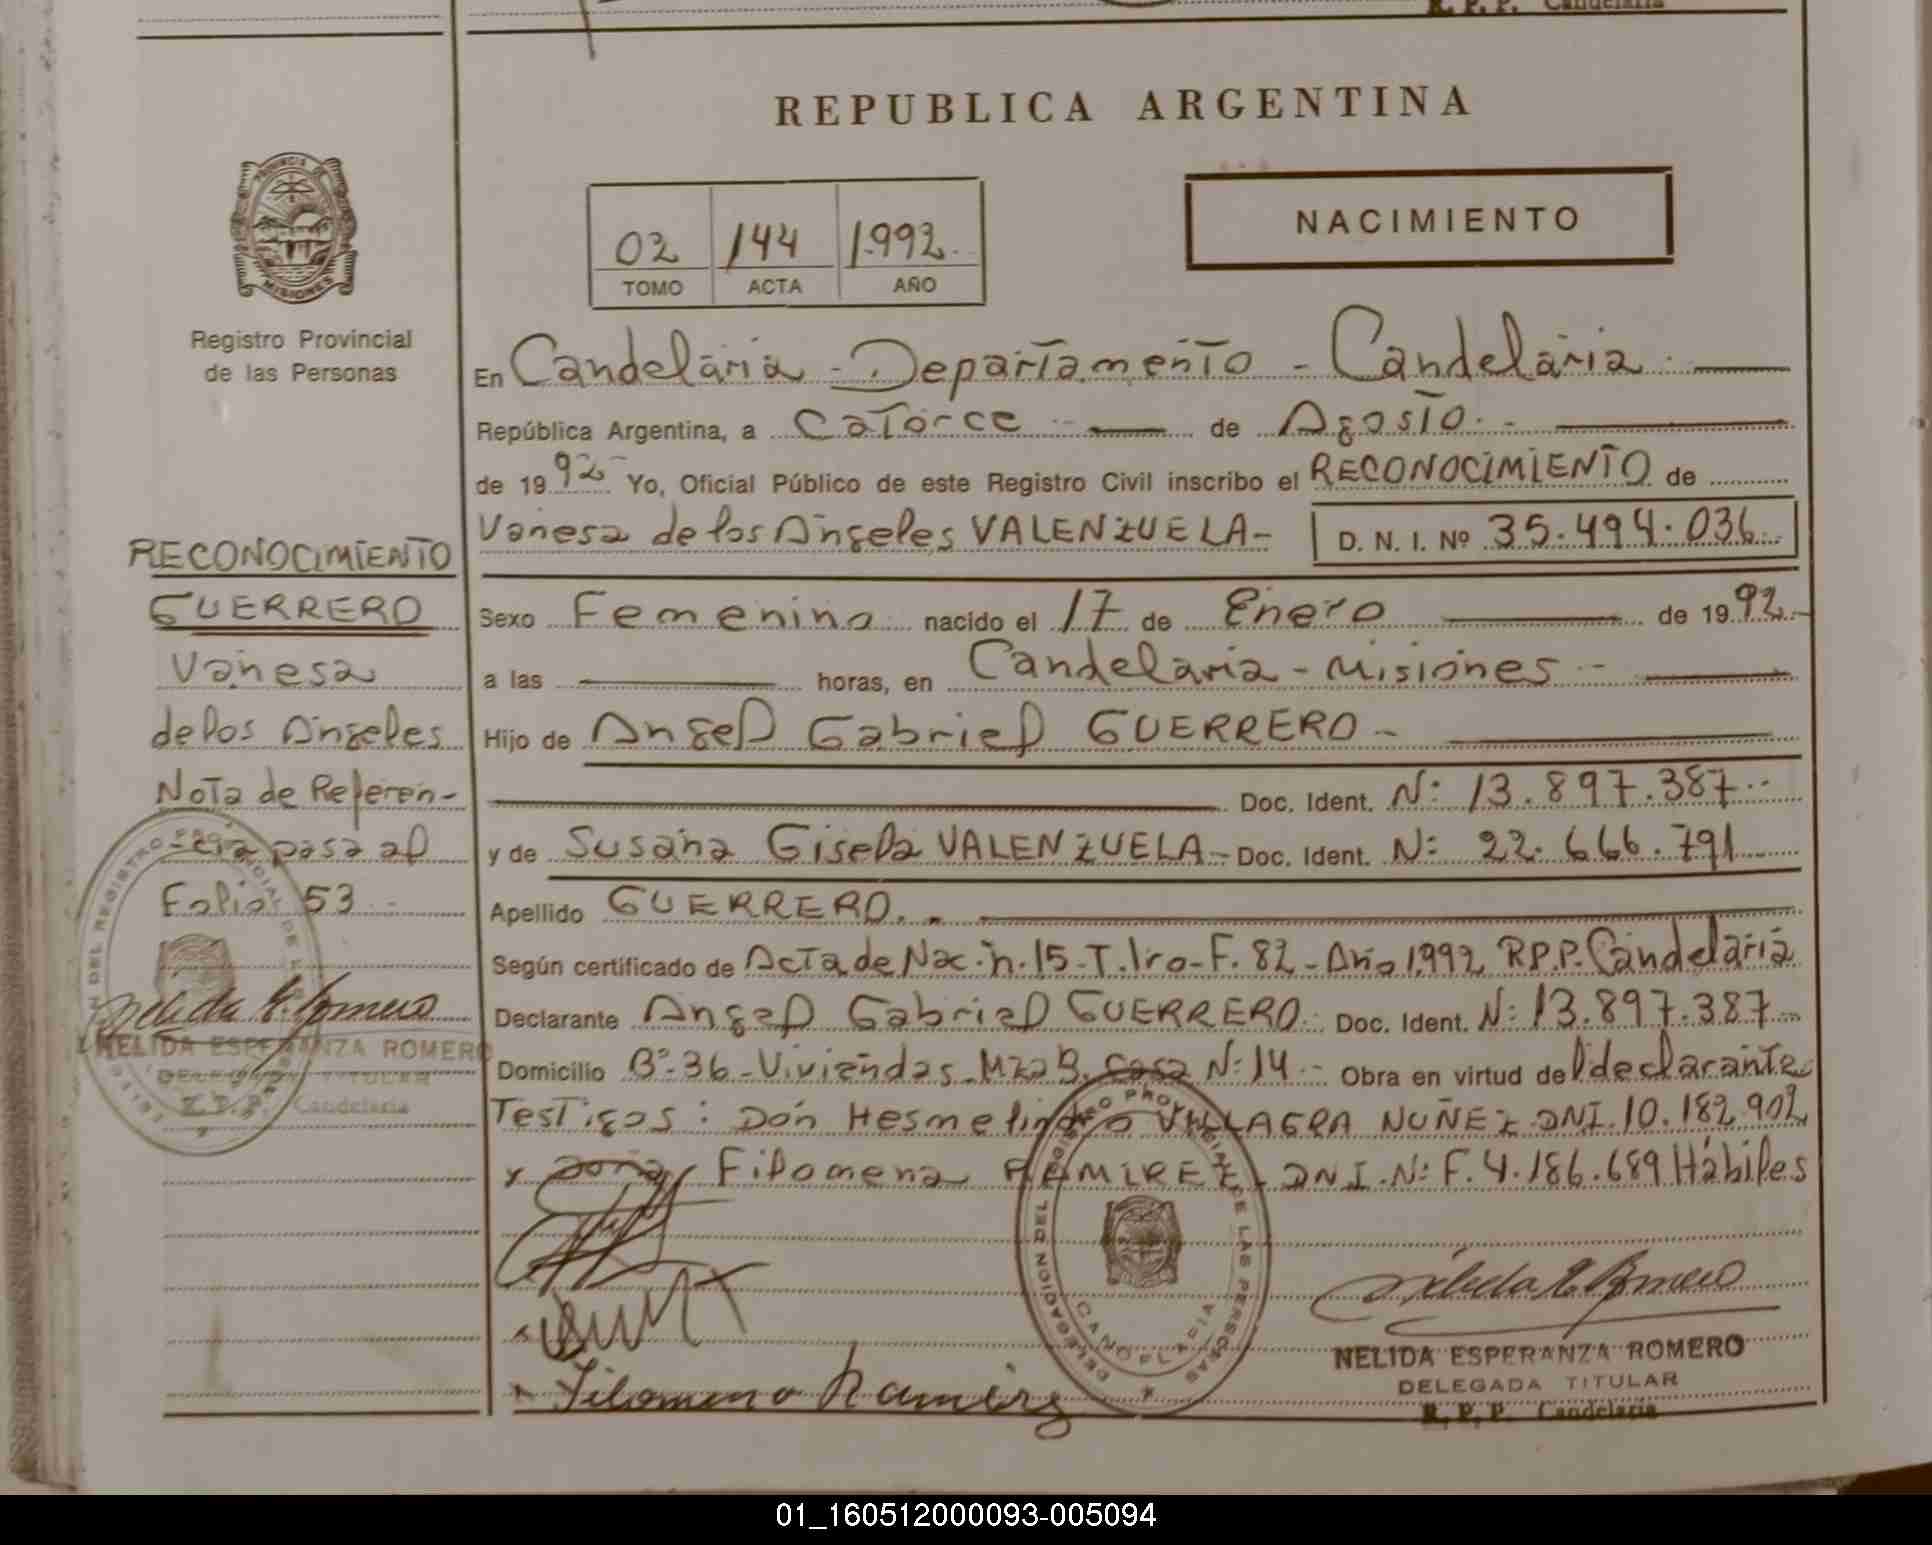 R. P. P. Candelaria
REPUBLICA ARGENTINA
PROVINCIA
MISIONES
Registro Provincial
de las Personas
02 144 1.992.
TOMO ACTA AÑO
NACIMIENTO
En Candelaria - Departamento - Candelaria.
República Argentina, a Catorce de Agosto. -
de 1992 Yo, Oficial Público de este Registro Civil inscribo el RECONOCIMIENTO de
Vanesa de los Angeles VALENZUELA - D. N. I. Nº 35.494.036.
Sexo Femenino nacido el 17 de Enero de 1992.-
a las horas, en Candelaria - Misiones -
Hijo de Angel Gabriel GUERRERO -
Doc. Ident. Nº: 13.897.387.-
y de Susana Gisela VALENZUELA - Doc. Ident. Nº: 22.666.791
Apellido GUERRERO. -
Según certificado de Acta de Nac. n. 15 - T. 1ro - F. 82 - Año 1.992 R.P.P. Candelaria
Declarante Angel Gabriel GUERRERO. Doc. Ident. Nº: 13.897.387-
Domicilio Bº 36 - Viviendas - Mza B. Casa Nº: 14 - Obra en virtud del declarante
Testigos: Don Hesmelindro VILLAGRA NUÑEZ DNI. 10.182.902
y doña Filomena RAMIREZ - DNI. Nº: F. 4.186.689 Hábiles
Filomena Ramirez
DELEGACION DEL REGISTRO PROVINCIAL DE LAS PERSONAS
CANDELARIA
Nelida E. Romero
NELIDA ESPERANZA ROMERO
DELEGADA TITULAR
R. P. P. Candelaria
RECONOCIMIENTO
GUERRERO
Vanesa
de los Angeles
Nota de Referen-
cia pasa al
Folio: 53
Nelida E. Romero
NELIDA ESPERANZA ROMERO
DELEGADA TITULAR
R. P. P. Candelaria
01_160512000093-005094